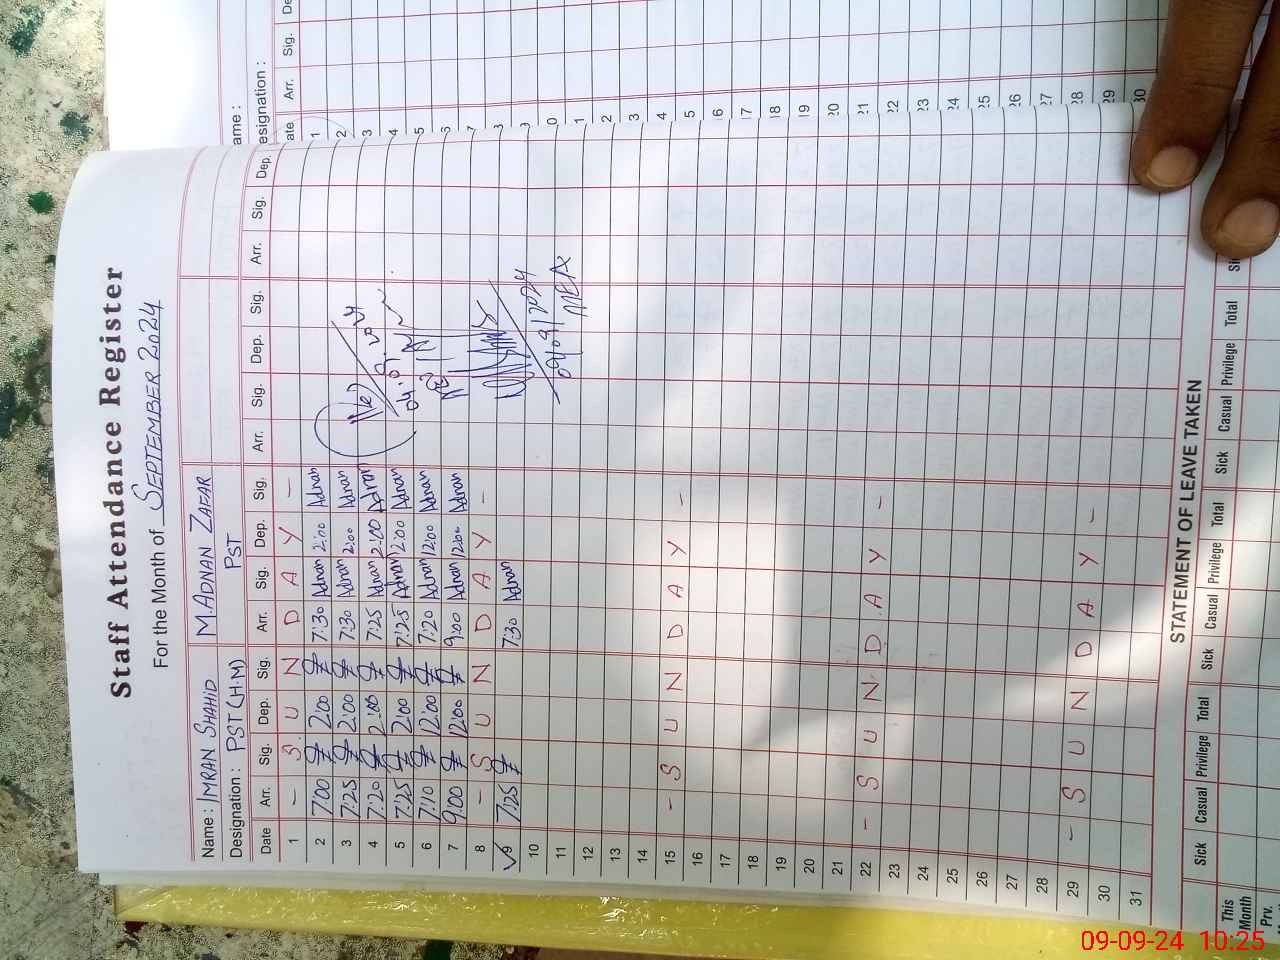 Staff Attendance Register
For the Month of SEPTEMBER 2024
Name : IMRAN SHAHID M.ADNAN ZAFAR
Designation : PST (H.M) PST
Date Arr. Sig. Dep. Sig. Arr. Sig. Dep. Sig. Arr. Sig. Dep. Sig. Arr. Sig. Dep.
1 - S U N D A Y -
2 7:00 2:00 7:30 Adnan 2:00 Adnan
3 7:25 2:00 7:30 Adnan 2:00 Adnan
4 7:20 2:00 7:25 Adnan 2:00 Adnan
5 7:25 2:00 7:25 Adnan 2:00 Adnan
6 7:10 12:00 7:20 Adnan 12:00 Adnan
7 9:00 12:00 9:00 Adnan 12:00 Adnan
8 - S U N D A Y -
9 7:25 7:30 Adnan
09/09/2024
MEA
10
11
12
13
14
15 - S U N D A Y -
16
17
18
19
20
21
22 - S U N D A Y -
23
24
25
26
27
28
29 - S U N D A Y -
30
31
STATEMENT OF LEAVE TAKEN
Sick Casual Privilege Total Sick Casual Privilege Total Sick Casual Privilege Total
This Month
Prv.
ame :
esignation :
ate Arr. Sig.
1
2
3
4
5
6
7
8
9
0
1
2
3
4
5
16
17
18
19
20
21
22
23
24
25
26
27
28
29
30
09-09-24 10:25